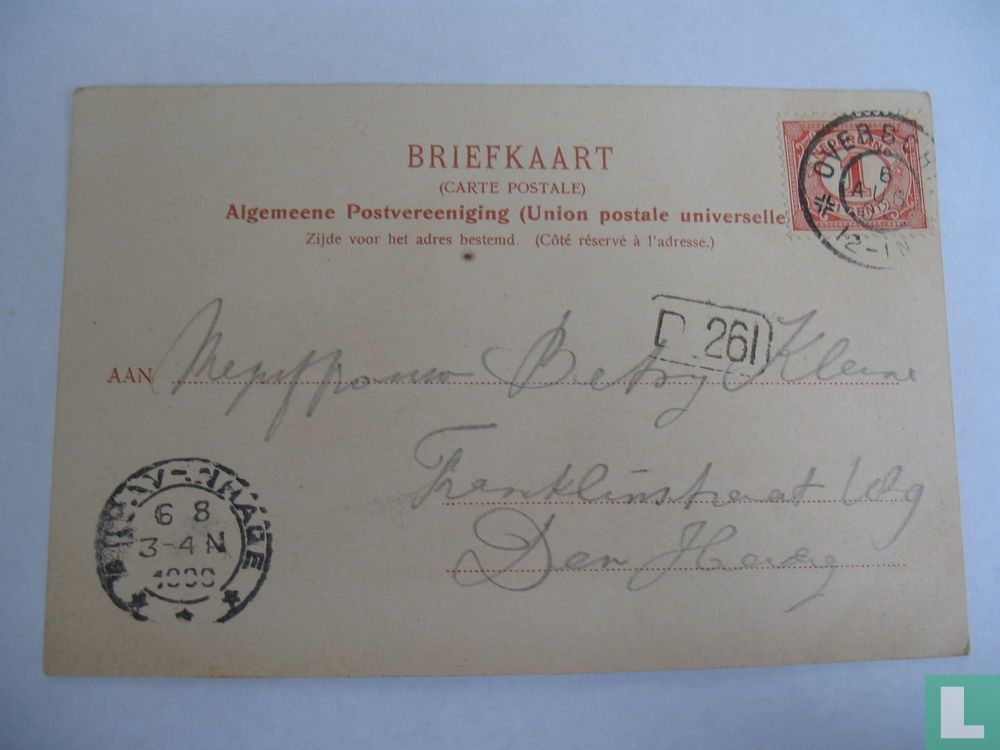 BRIEFKAART
(CARTE POSTALE)
Algemeene Postvereeniging (Union postale universelle
Zijde voor het adres bestemd. (Côté réservé à l'adresse.)
OVERSCH
6
12-1N
1
CENT
261
AAN Betsy Kleine
Franklinstraat
Den Haag
6 8
3-4 N
L